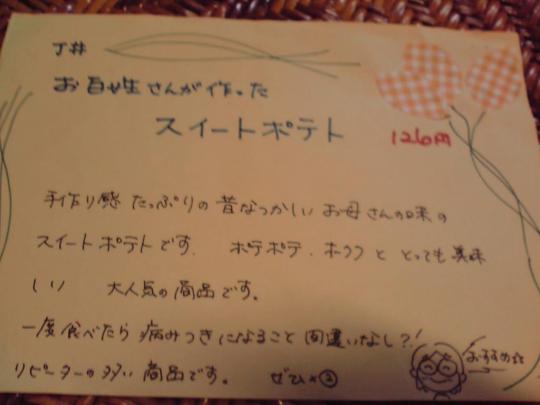 丁井
お母生さんが作った
スイートポテト
126円
手作り感たっぷりの昔なつかしいお母さんの味の
スイートポテトです. ポテポテ.ホクホクととっても美味
しい 大人気の商品です。
一度食べたら病みつきになること間違いなし?!
リピーターの多い商品です。 ぜひ×②
おすすめ☆